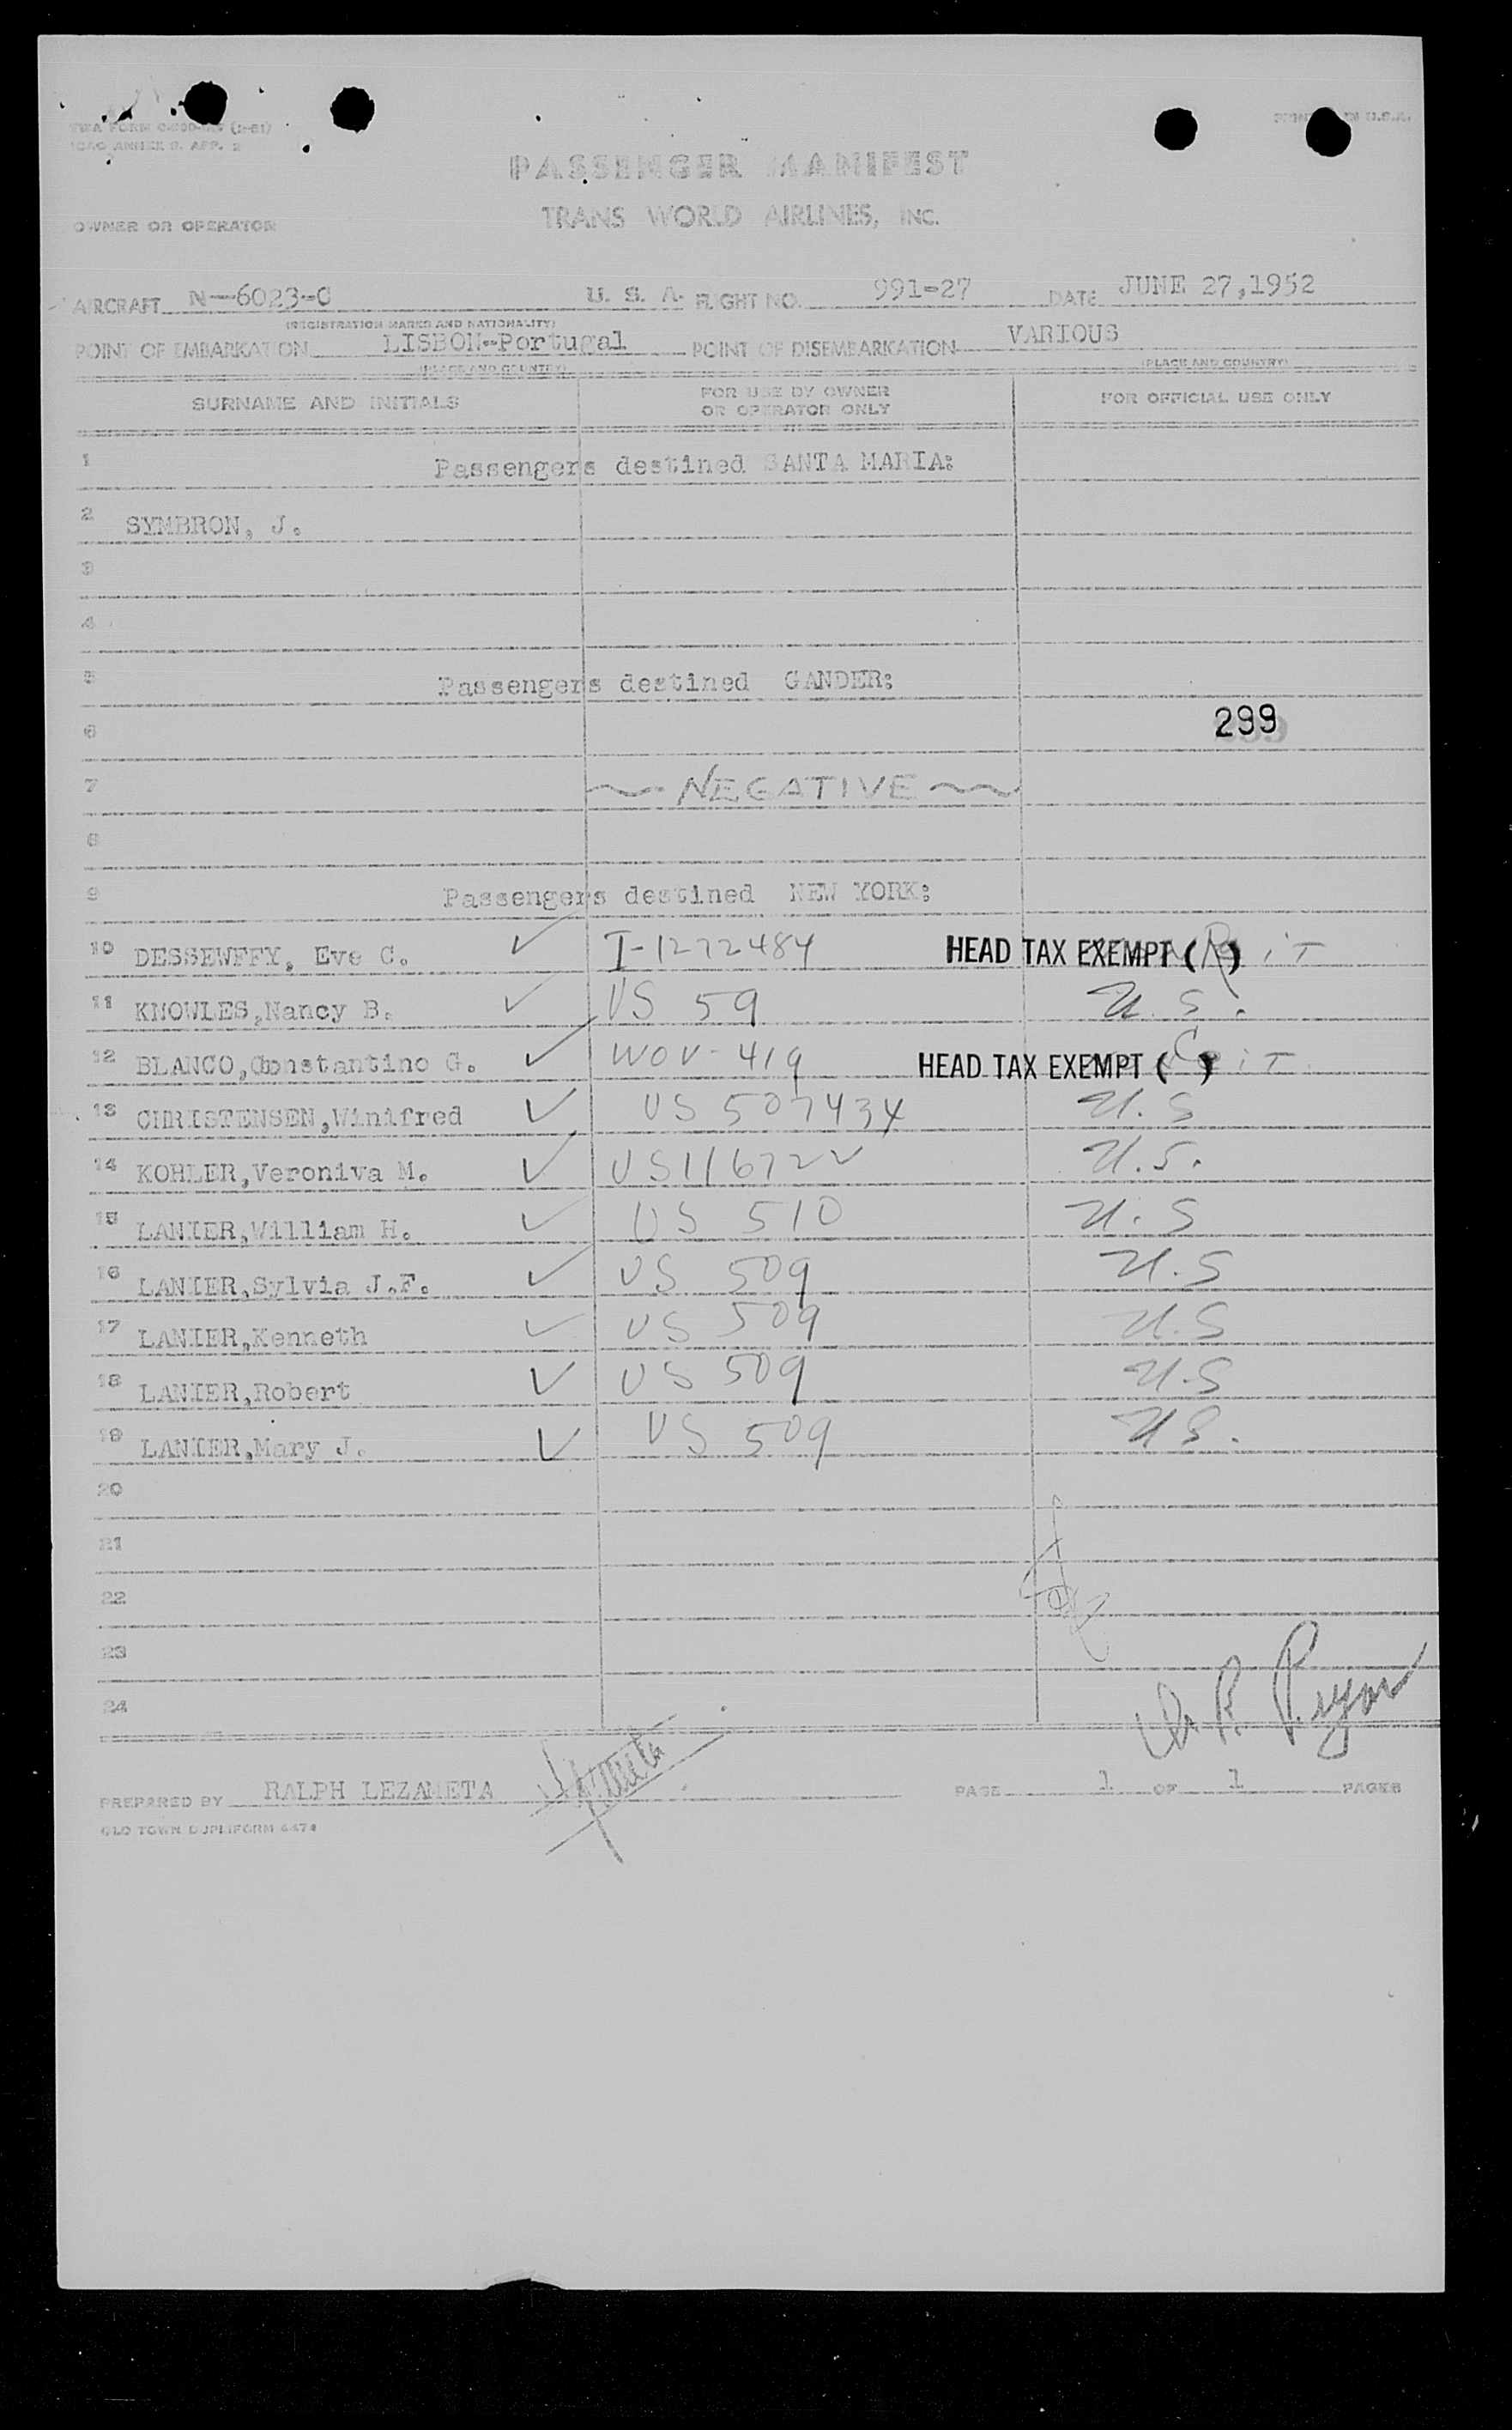 TWA FORM (2-51)
ICAO ANNEX 9, APP. 2
PRINTED IN U.S.A.
PASSENGER MANIFEST
OWNER OR OPERATOR TRANS WORLD AIRLINES, INC.
AIRCRAFT N-6023-C U. S. A. FLIGHT NO. 991-27 DATE JUNE 27,1952
(REGISTRATION MARKS AND NATIONALITY)
POINT OF EMBARKATION LISBON-Portugal POINT OF DISEMBARKATION VARIOUS
(PLACE AND COUNTRY) (PLACE AND COUNTRY)
SURNAME AND INITIALS FOR USE BY OWNER OR OPERATOR ONLY FOR OFFICIAL USE ONLY
1 Passengers destined SANTA MARIA:
2 SYMBRON, J.
3
4
5 Passengers destined GANDER:
6 299
7 NEGATIVE
8
9 Passengers destined NEW YORK:
10 DESSEWFFY, Eve C. ✓ I-1272484 HEAD TAX EXEMPT (R)
11 KNOWLES,Nancy B. ✓ US 59 U.S.
12 BLANCO,Constantino G. ✓ WOV-419 HEAD TAX EXEMPT (C)
13 CHRISTENSEN,Winifred ✓ US 507434 U.S
14 KOHLER,Veroniva M. ✓ US116722 U.S.
15 LANIER,William H. ✓ US 510 U.S
16 LANIER,Sylvia J.F. ✓ US 509 U.S
17 LANIER,Kenneth ✓ US 509 U.S
18 LANIER,Robert ✓ US 509 U.S
19 LANIER,Mary J. ✓ US 509 US.
20
21
22
23
24
PREPARED BY RALPH LEZAMETA PAGE 1 OF 1 PAGES
OLD TOWN DUPLIFORM 6474